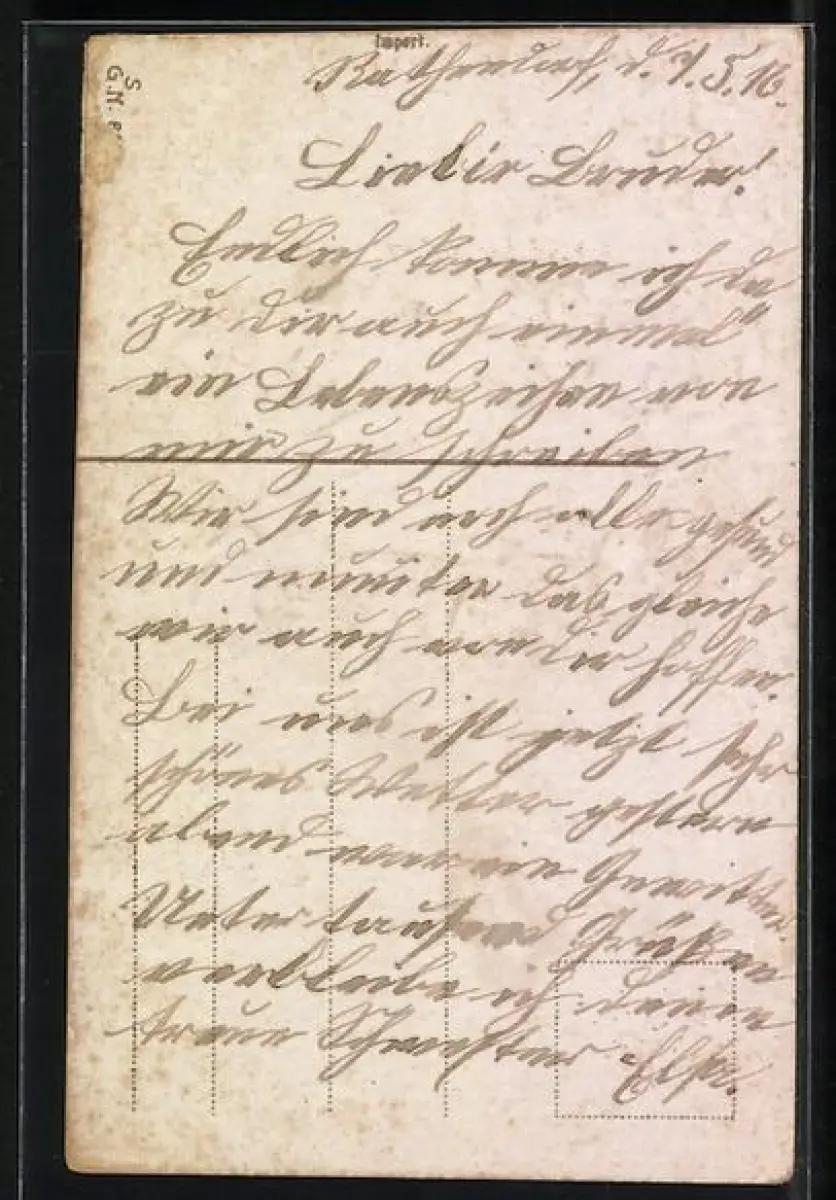 Import.
d. 7. 5. 16.
Lieber Bruder!
Endlich komme ich da
zu dir auch einmal
ein Lebenszeichen von
mir zu schreiben
Wir sind noch alle gesund
und munter das gleiche
wir auch von dir hoffen.
Bei uns ist jetzt sehr
schönes Wetter gestern
abend war ein Gewitter.
Unter tausend Grüßen
verbleibe ich deine
treue Schwester Else.
S
G.M.